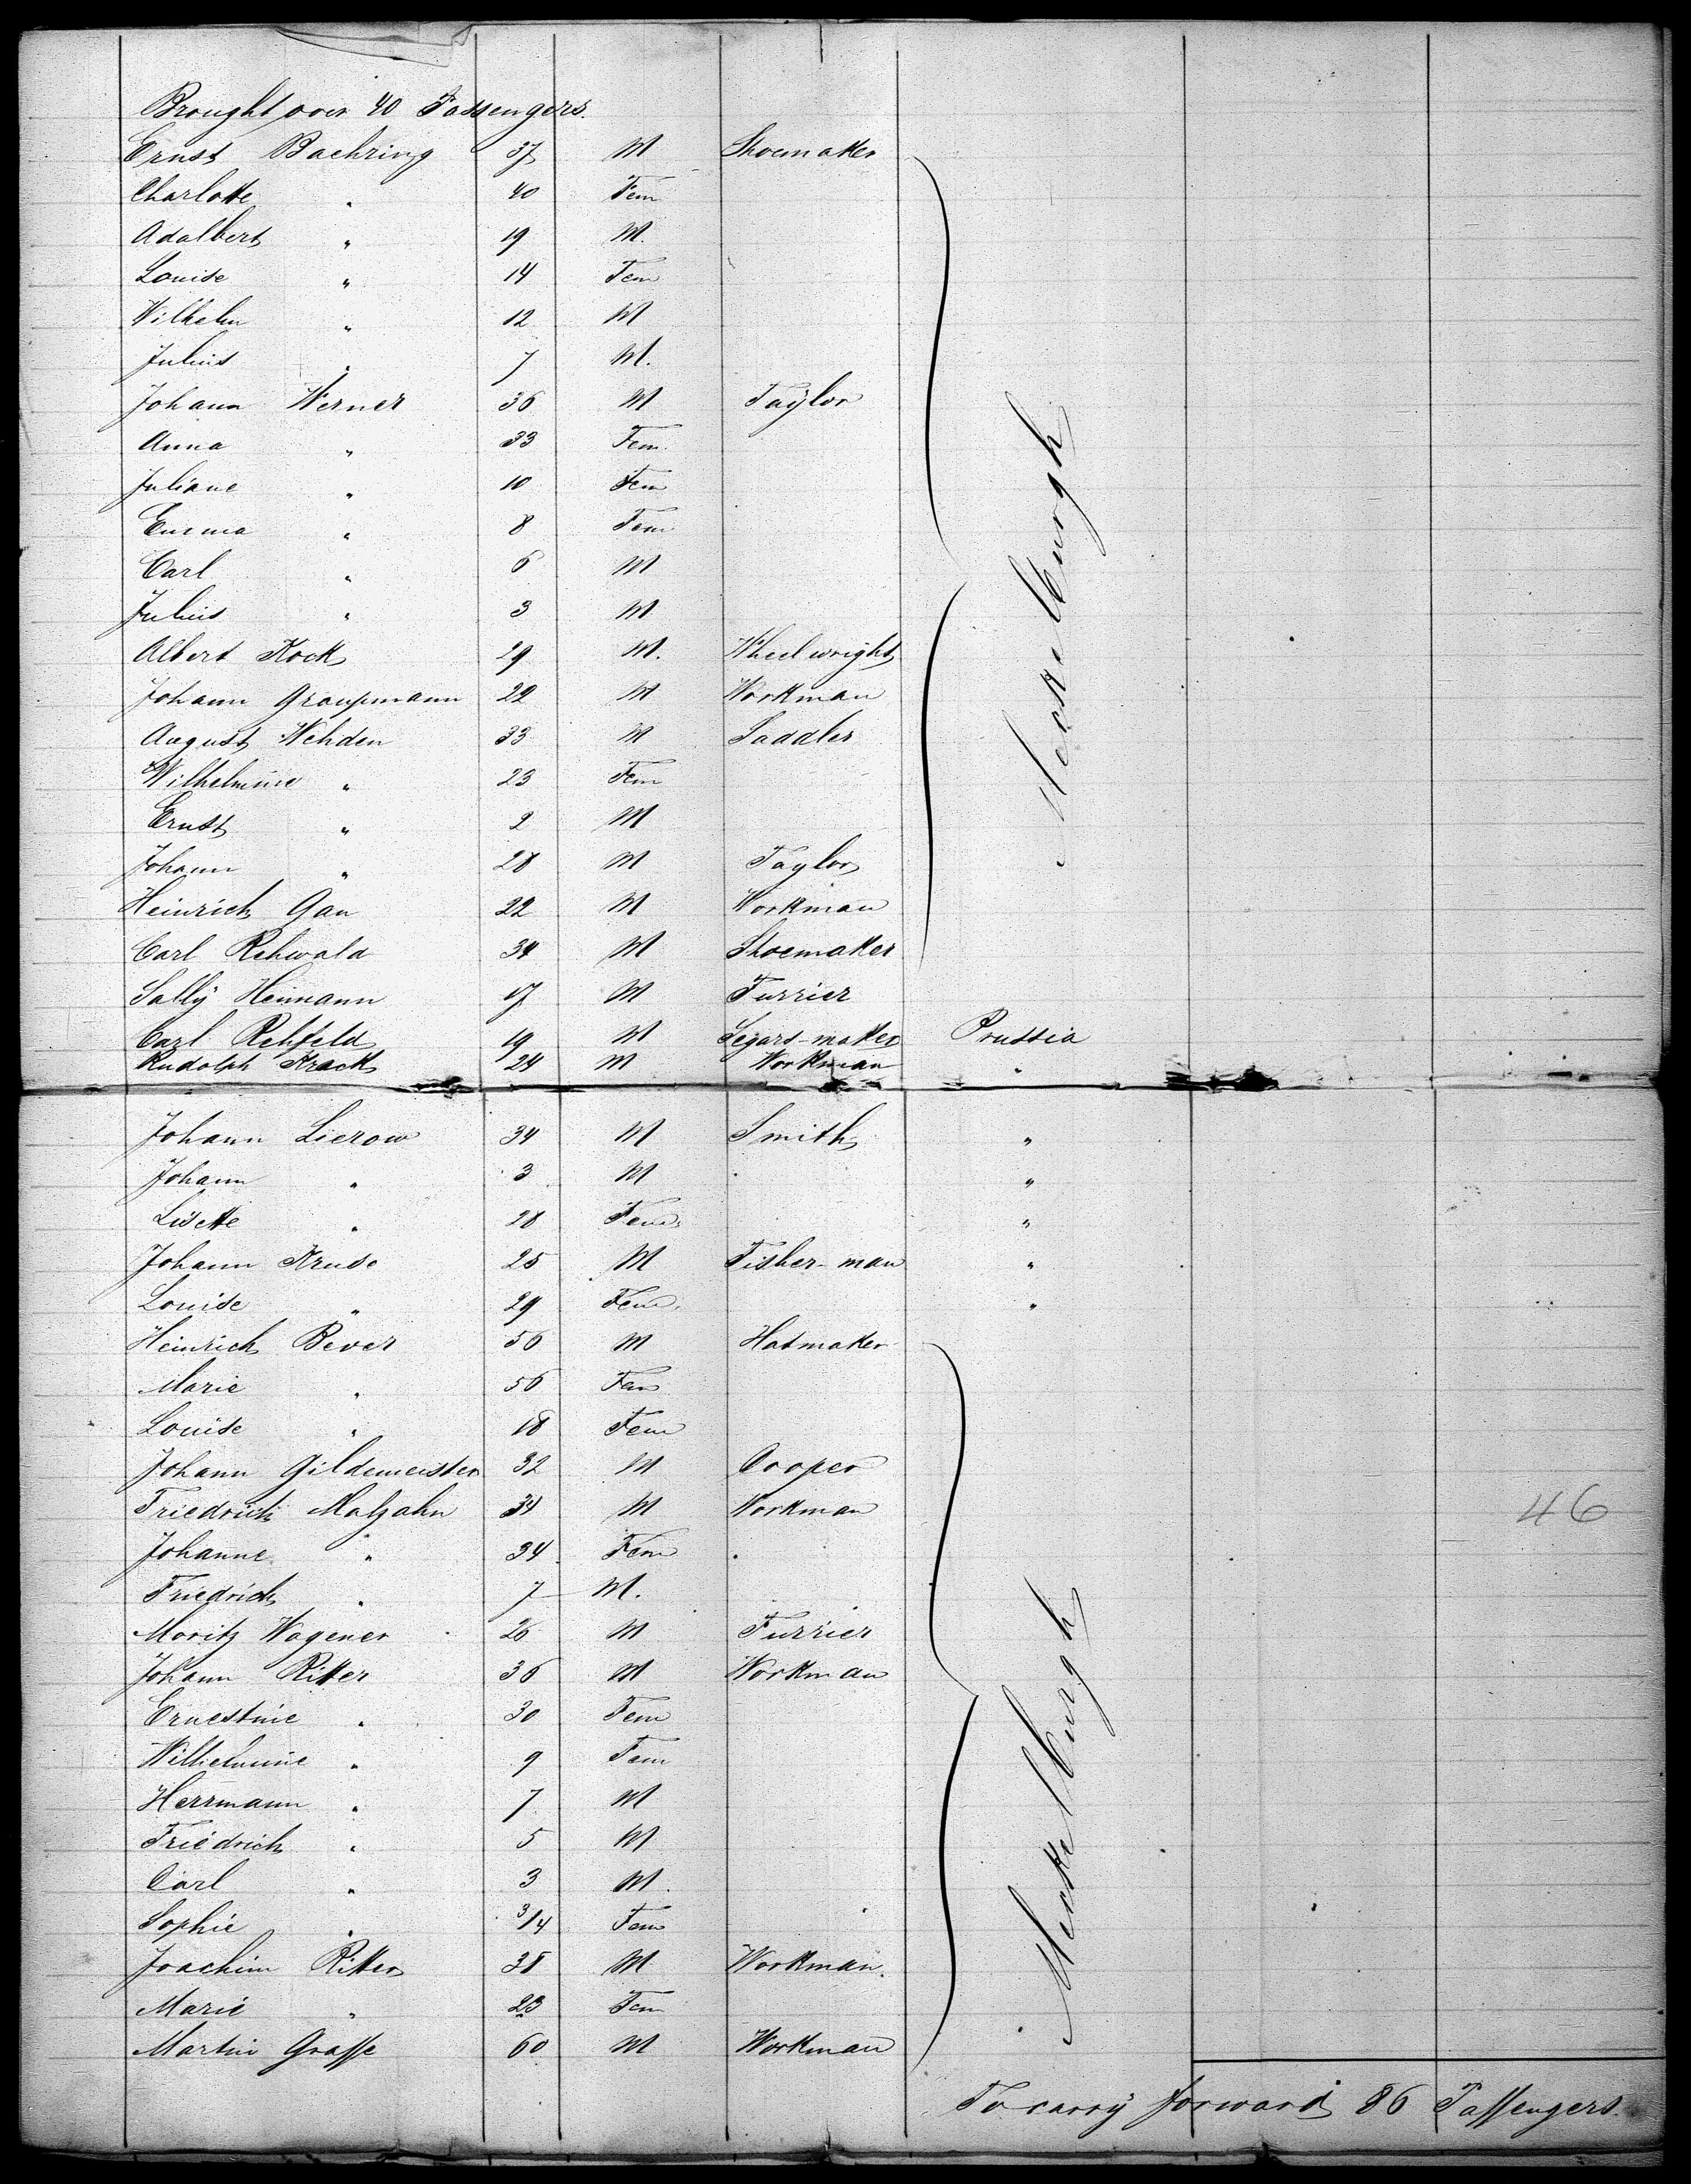 Brought over 40 Passengers.
Ernst Baehring 37 M Shoemaker
Charlotte " 40 Fem
Adalbert " 19 M.
Louise " 14 Fem
Wilhelm " 12 M
Julius " 7 M.
Johann Werner 36 M Taylor
Anna " 33 Fem.
Juliane " 10 Fem
Emma " 8 Fem
Carl " 6 M
Julius " 3 M
Albert Kock 29 M. Wheelwright
Johann Graupmann 29 M Workman
August Wehden 33 M Saddler
Wilhelmine " 23 Fem
Ernst " 2 M
Johann " 28 M Taylor
Heinrich Gau 22 M Workman
Carl Rehwald 34 M Shoemaker
Mecklburgh
Sally Heimann 17 M Furrier
Carl Rehfeld 19 M Segars-maker Prussia
Rudolph Krack 24 M Workman "
Johann Lierow 34 M Smith "
Johann " 3 M "
Lisette " 28 Fem. "
Johann Kruse 25 M Fisher-man "
Louise " 29 Fem. "
Heinrich Bever 56 M Hatmaker
Marie " 56 Fem
Louise " 18 Fem
Johann Gildemeister 32 M Cooper
Friedrich Malzahn 34 M Workman
46
Johanne " 34 Fem
Friedrich " 7 M.
Moritz Wagener 26 M Furrier
Johann Ritter 36 M Workman
Ernestine " 30 Fem
Wilhelmine " 9 Fem
Herrmann " 7 M
Friedrich " 5 M
Carl " 3 M.
Sophie " 3/4 Fem
Joachim Ritter 38 M Workman.
Marie " 23 Fem
Martin Grasse 60 M Workman
Mecklburgh
To carry forward 86 Passengers.